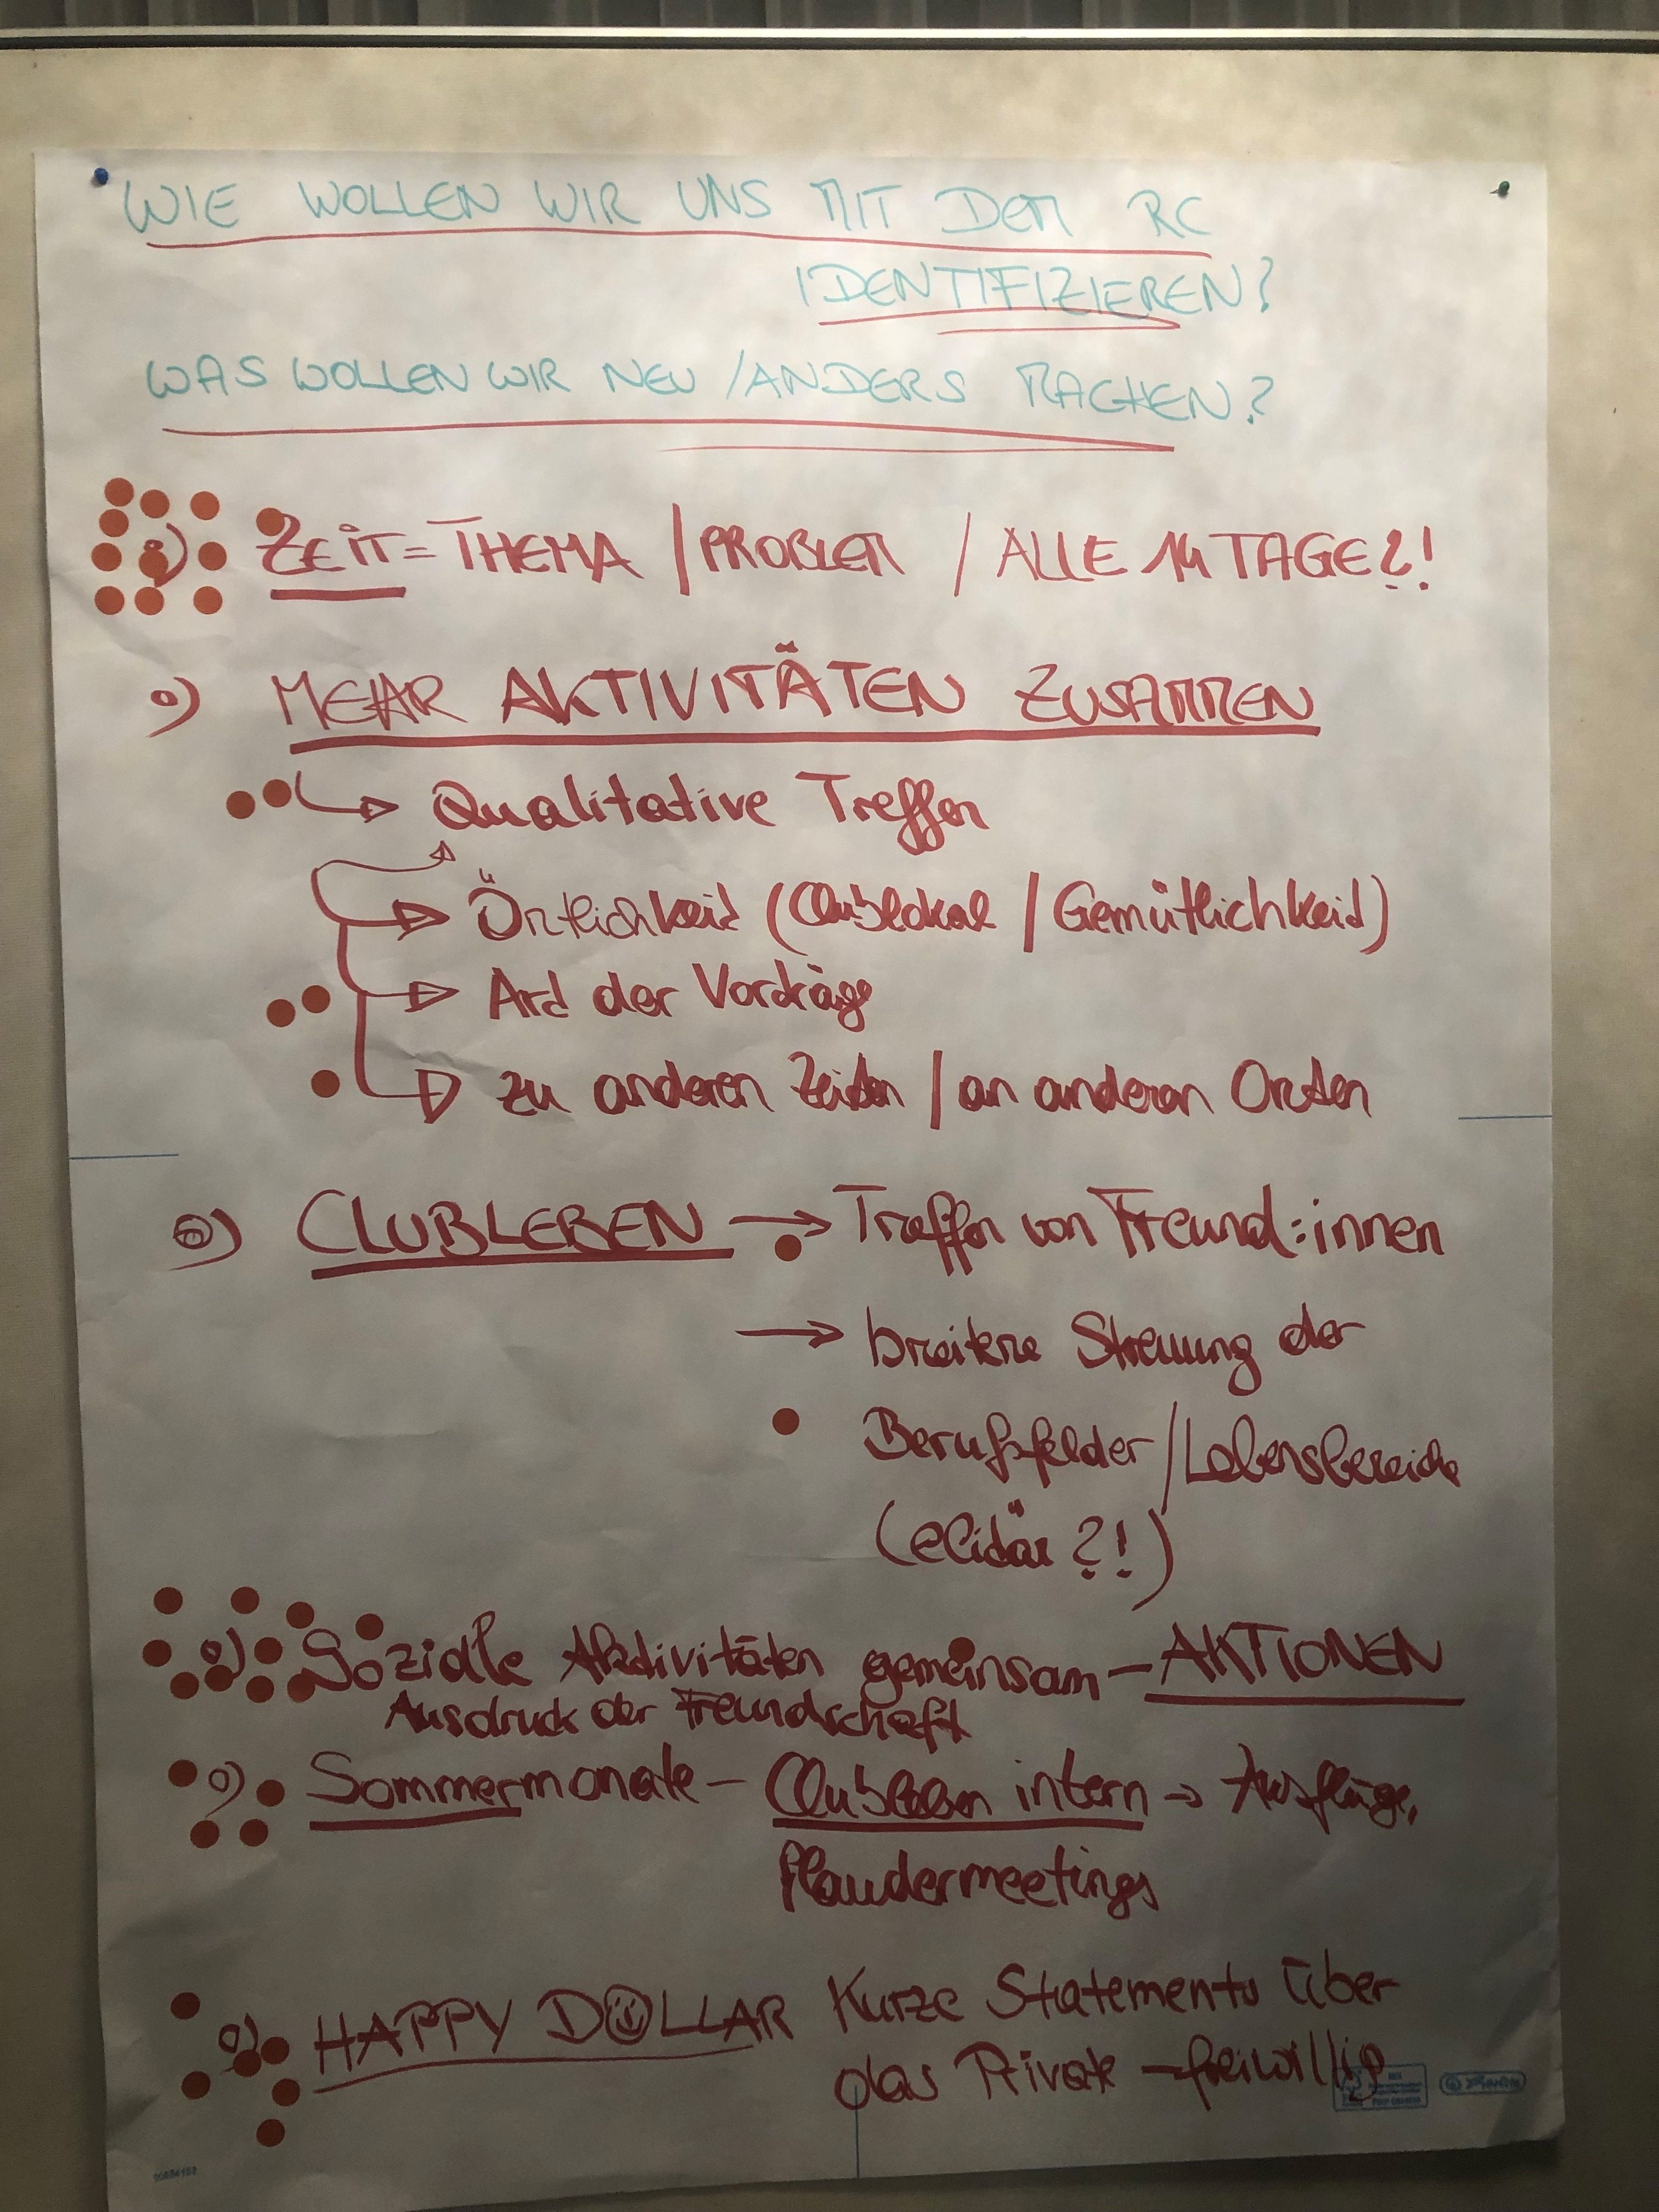 WIE WOLLEN WIR UNS MIT DEM RC
IDENTIFIZIEREN?
WAS WOLLEN WIR NEU / ANDERS MACHEN?
ZEIT = THEMA / PROBLEM / ALLE 14 TAGE?!
MEHR AKTIVITÄTEN ZUSAMMEN
Qualitative Treffen
Örtlichkeit (Clublokal / Gemütlichkeit)
Art der Vorträge
zu anderen Zeiten / an anderen Orten
CLUBLEBEN → Treffen von Freund:innen
→ breitere Streuung der
Berufsfelder / Lebensbereiche
(elitär?!)
Soziale Aktivitäten gemeinsam – AKTIONEN
Ausdruck der Freundschaft
Sommermonate – Clubleben intern → Ausflüge,
Plaudermeetings
HAPPY DOLLAR Kurze Statements über
das Private – freiwillig